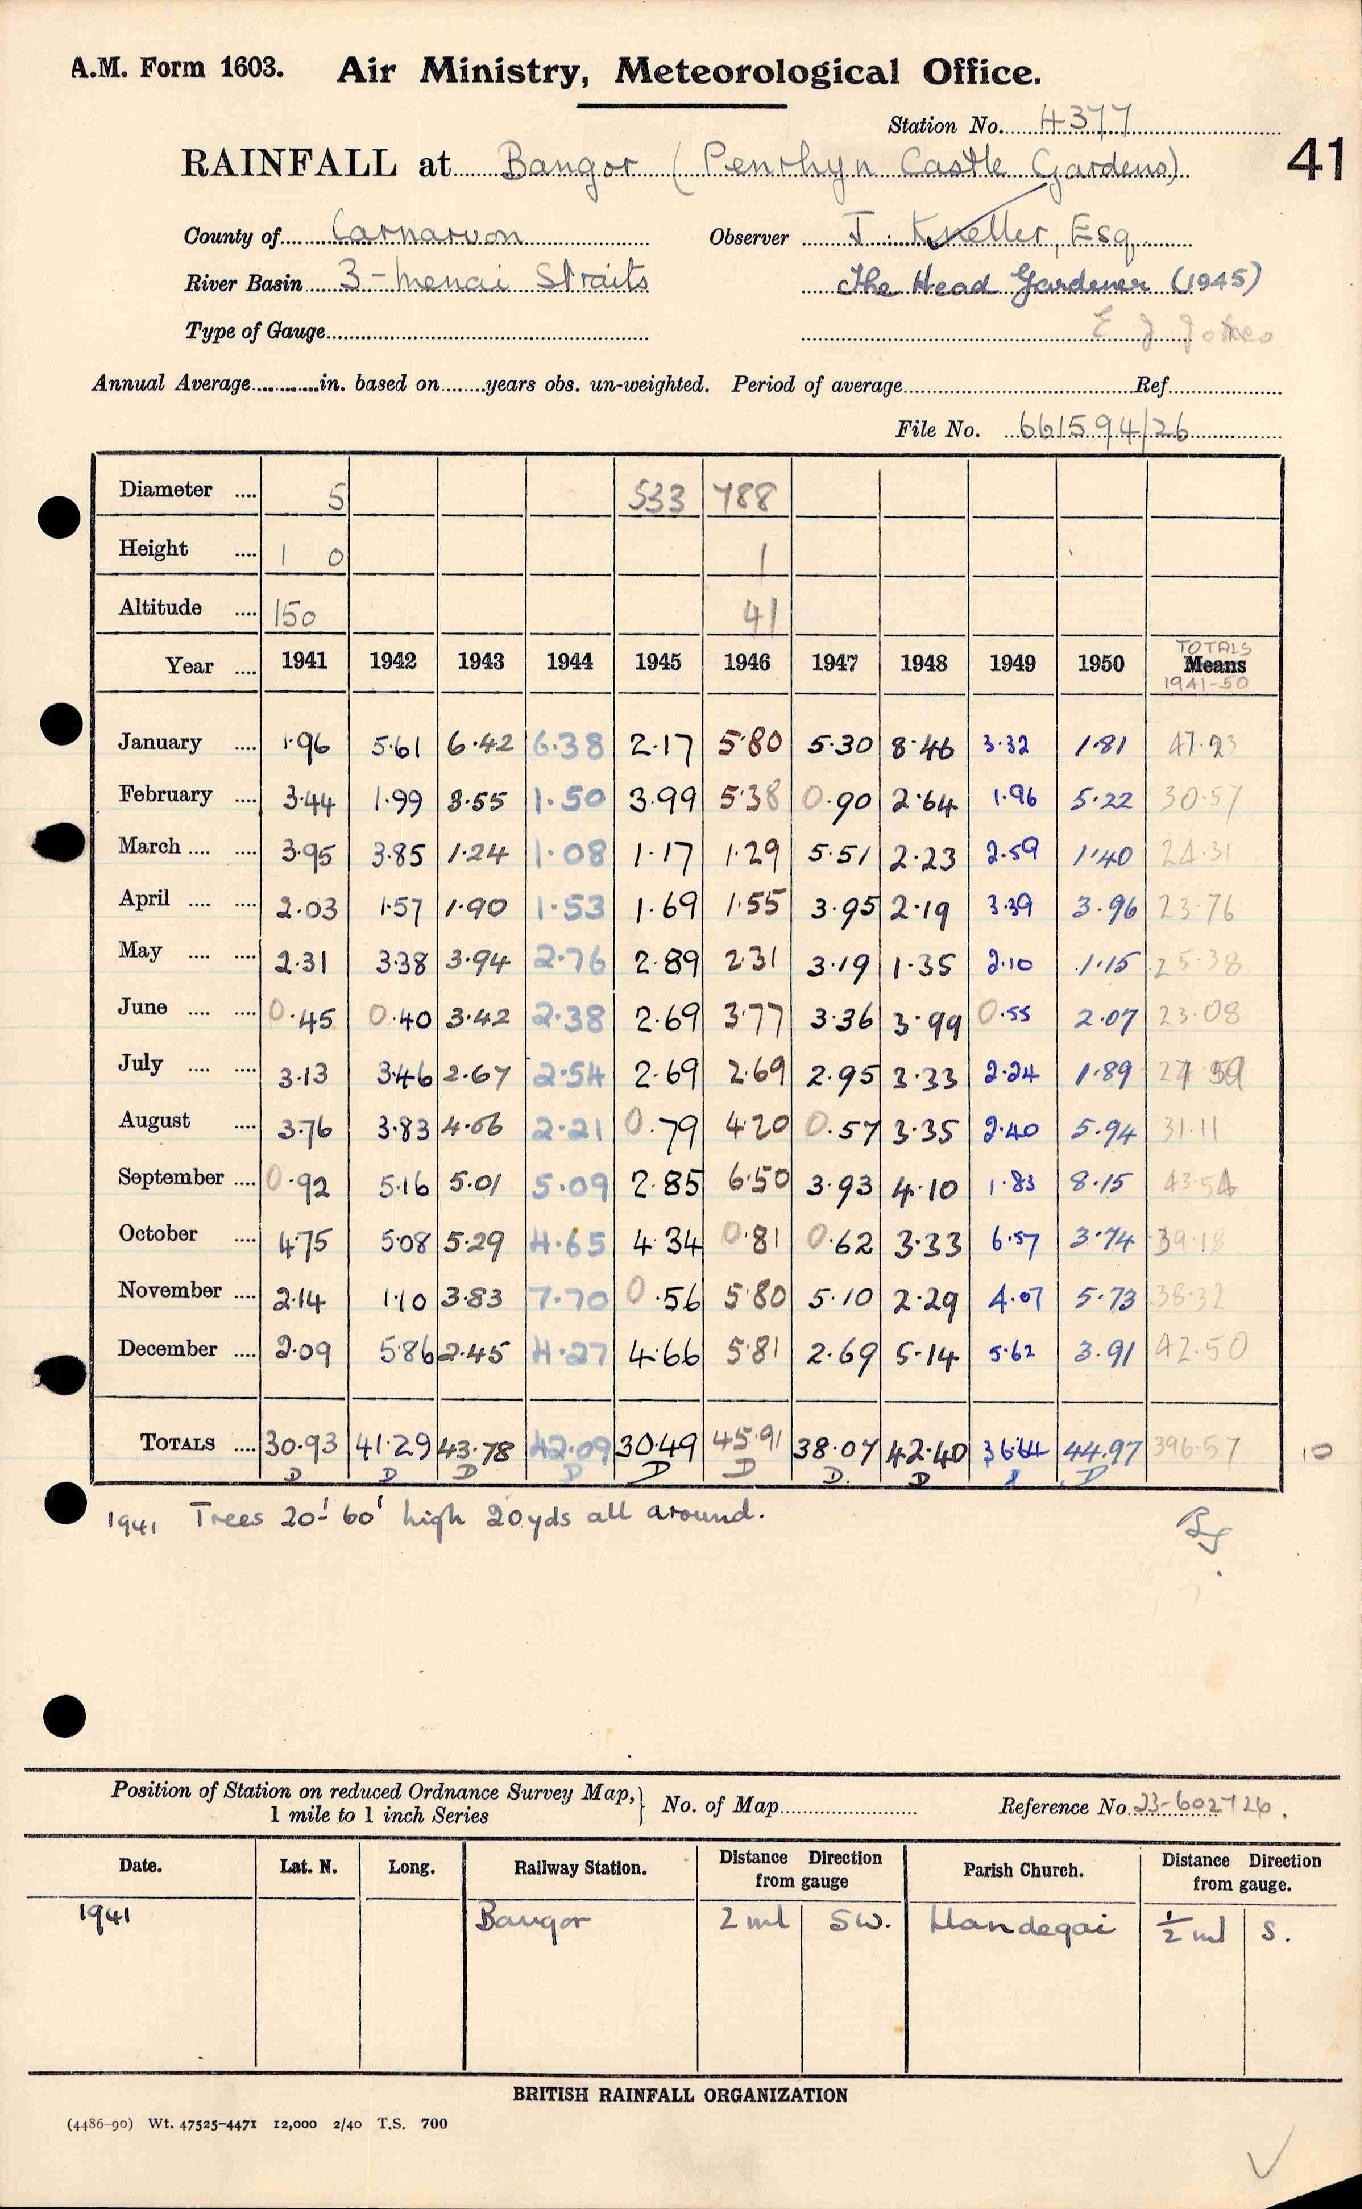 A.M. Form 1603. Air Ministry, Meteorological Office.
Station No. 4377
41
RAINFALL at Bangor (Penrhyn Castle Gardens)
County of Carnarvon Observer J. Kneller, Esq
River Basin 3 - Menai Straits The Head Gardener (1945)
Type of Gauge E J Jones
Annual Average in. based on years obs. un-weighted. Period of average Ref
File No. 661594/26
Diameter 5 533 788
Height 1 0 1
Altitude 150 41
Year 1941 1942 1943 1944 1945 1946 1947 1948 1949 1950 TOTALS Means 1941-50
January 1.96 5.61 6.42 6.38 2.17 5.80 5.30 8.46 3.32 1.81 47.23
February 3.44 1.99 3.55 1.50 3.99 5.38 0.90 2.64 1.96 5.22 30.57
March 3.95 3.85 1.24 1.08 1.17 1.29 5.51 2.23 2.59 1.40 24.31
April 2.03 1.57 1.90 1.53 1.69 1.55 3.95 2.19 3.39 3.96 23.76
May 2.31 3.38 3.94 2.76 2.89 2.31 3.19 1.35 2.10 1.15 25.38
June 0.45 0.40 3.42 2.38 2.69 3.77 3.36 3.99 0.55 2.07 23.08
July 3.13 3.46 2.67 2.54 2.69 2.69 2.95 3.33 2.24 1.89 27.59
August 3.76 3.83 4.06 2.21 0.79 4.20 0.57 3.35 2.40 5.94 31.11
September 0.92 5.16 5.01 5.09 2.85 6.50 3.93 4.10 1.83 8.15 43.54
October 4.75 5.08 5.29 4.65 4.34 0.81 0.62 3.33 6.57 3.74 39.18
November 2.14 1.10 3.83 7.70 0.56 5.80 5.10 2.29 4.07 5.73 38.32
December 2.09 5.86 2.45 4.27 4.66 5.81 2.69 5.14 5.62 3.91 42.50
TOTALS 30.93 41.29 43.78 42.09 30.49 45.91 38.07 42.40 36.64 44.97 396.57 10
D D D D D D D. D D
1941 Trees 20'-60' high 20 yds all around.
Position of Station on reduced Ordnance Survey Map,
1 mile to 1 inch Series
No. of Map Reference No. 23-602726.
Date. Lat. N. Long. Railway Station. Distance Direction from gauge Parish Church. Distance Direction from gauge.
1941 Bangor 2 ml SW. Llandegai ½ ml S.
BRITISH RAINFALL ORGANIZATION
(4486-90) Wt. 47525-4471 12,000 2/40 T.S. 700